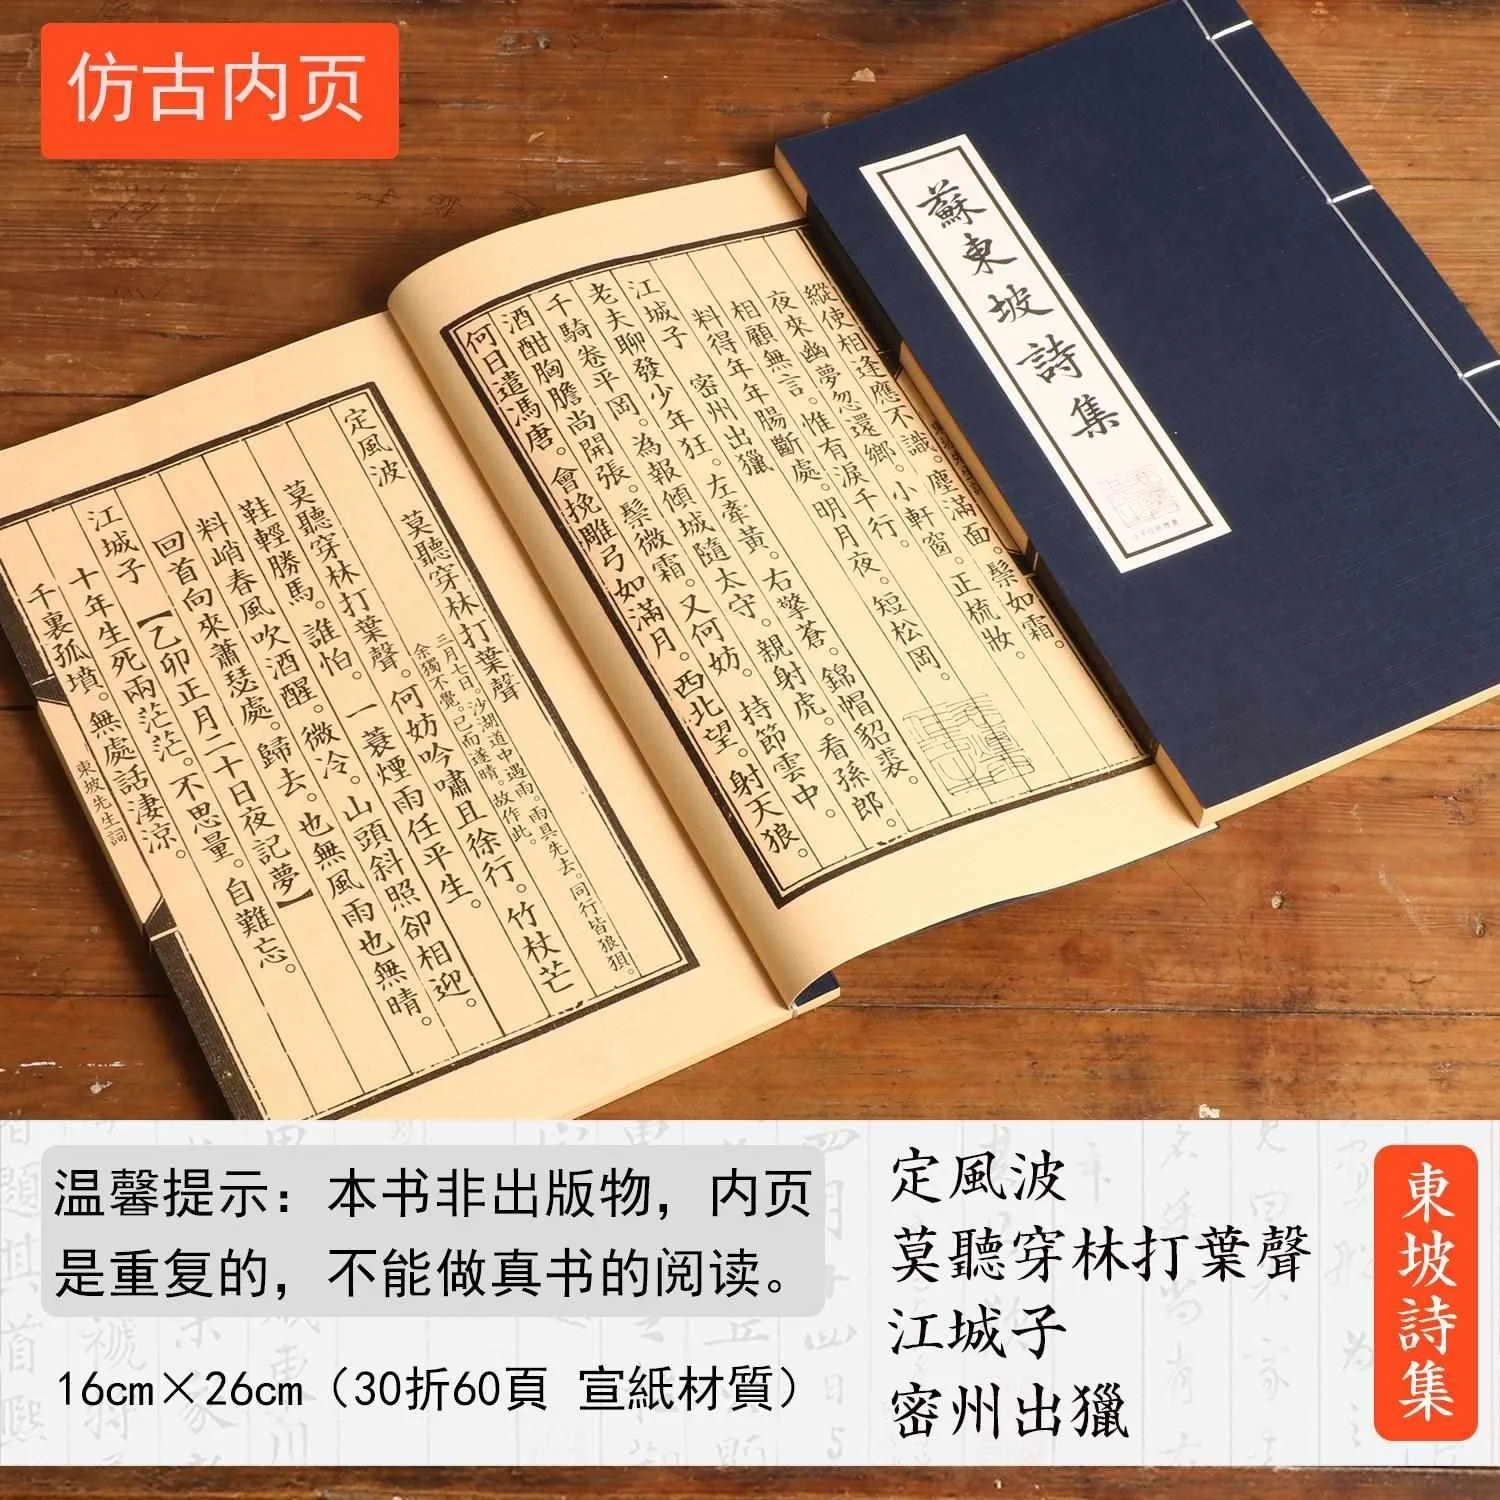 仿古内页
蘇東坡詩集
縱使相逢應不識。塵滿面。鬃如霜。
夜來幽夢忽還鄉。小軒窗。正梳妝。
相顧無言。惟有淚千行。
料得年年腸斷處。明月夜。短松岡。
江城子 密州出獵
老夫聊發少年狂。左牽黃。右擎蒼。錦帽貂裘。
千騎卷平岡。為報傾城隨太守。親射虎。看孫郎。
酒酣胸膽尚開張。鬃微霜。又何妨。持節雲中。
何日遣馮唐。會挽雕弓如滿月。西北望。射天狼。
定風波 莫聽穿林打葉聲
三月七日。沙湖道中遇雨。雨具先去。同行皆狼狽。
余獨不覺。已而遂晴。故作此。
莫聽穿林打葉聲。何妨吟嘯且徐行。竹杖芒
鞋輕勝馬。誰怕。一蓑煙雨任平生。
料峭春風吹酒醒。微冷。山頭斜照卻相迎。
回首向來蕭瑟處。歸去。也無風雨也無晴。
江城子【乙卯正月二十日夜記夢】
十年生死兩茫茫。不思量。自難忘。
千裏孤墳。無處話淒涼。
東坡先生詞
温馨提示：本书非出版物，内页
是重复的，不能做真书的阅读。
16cm×26cm（30折60頁 宣紙材質）
定風波
莫聽穿林打葉聲
江城子
密州出獵
東坡詩集